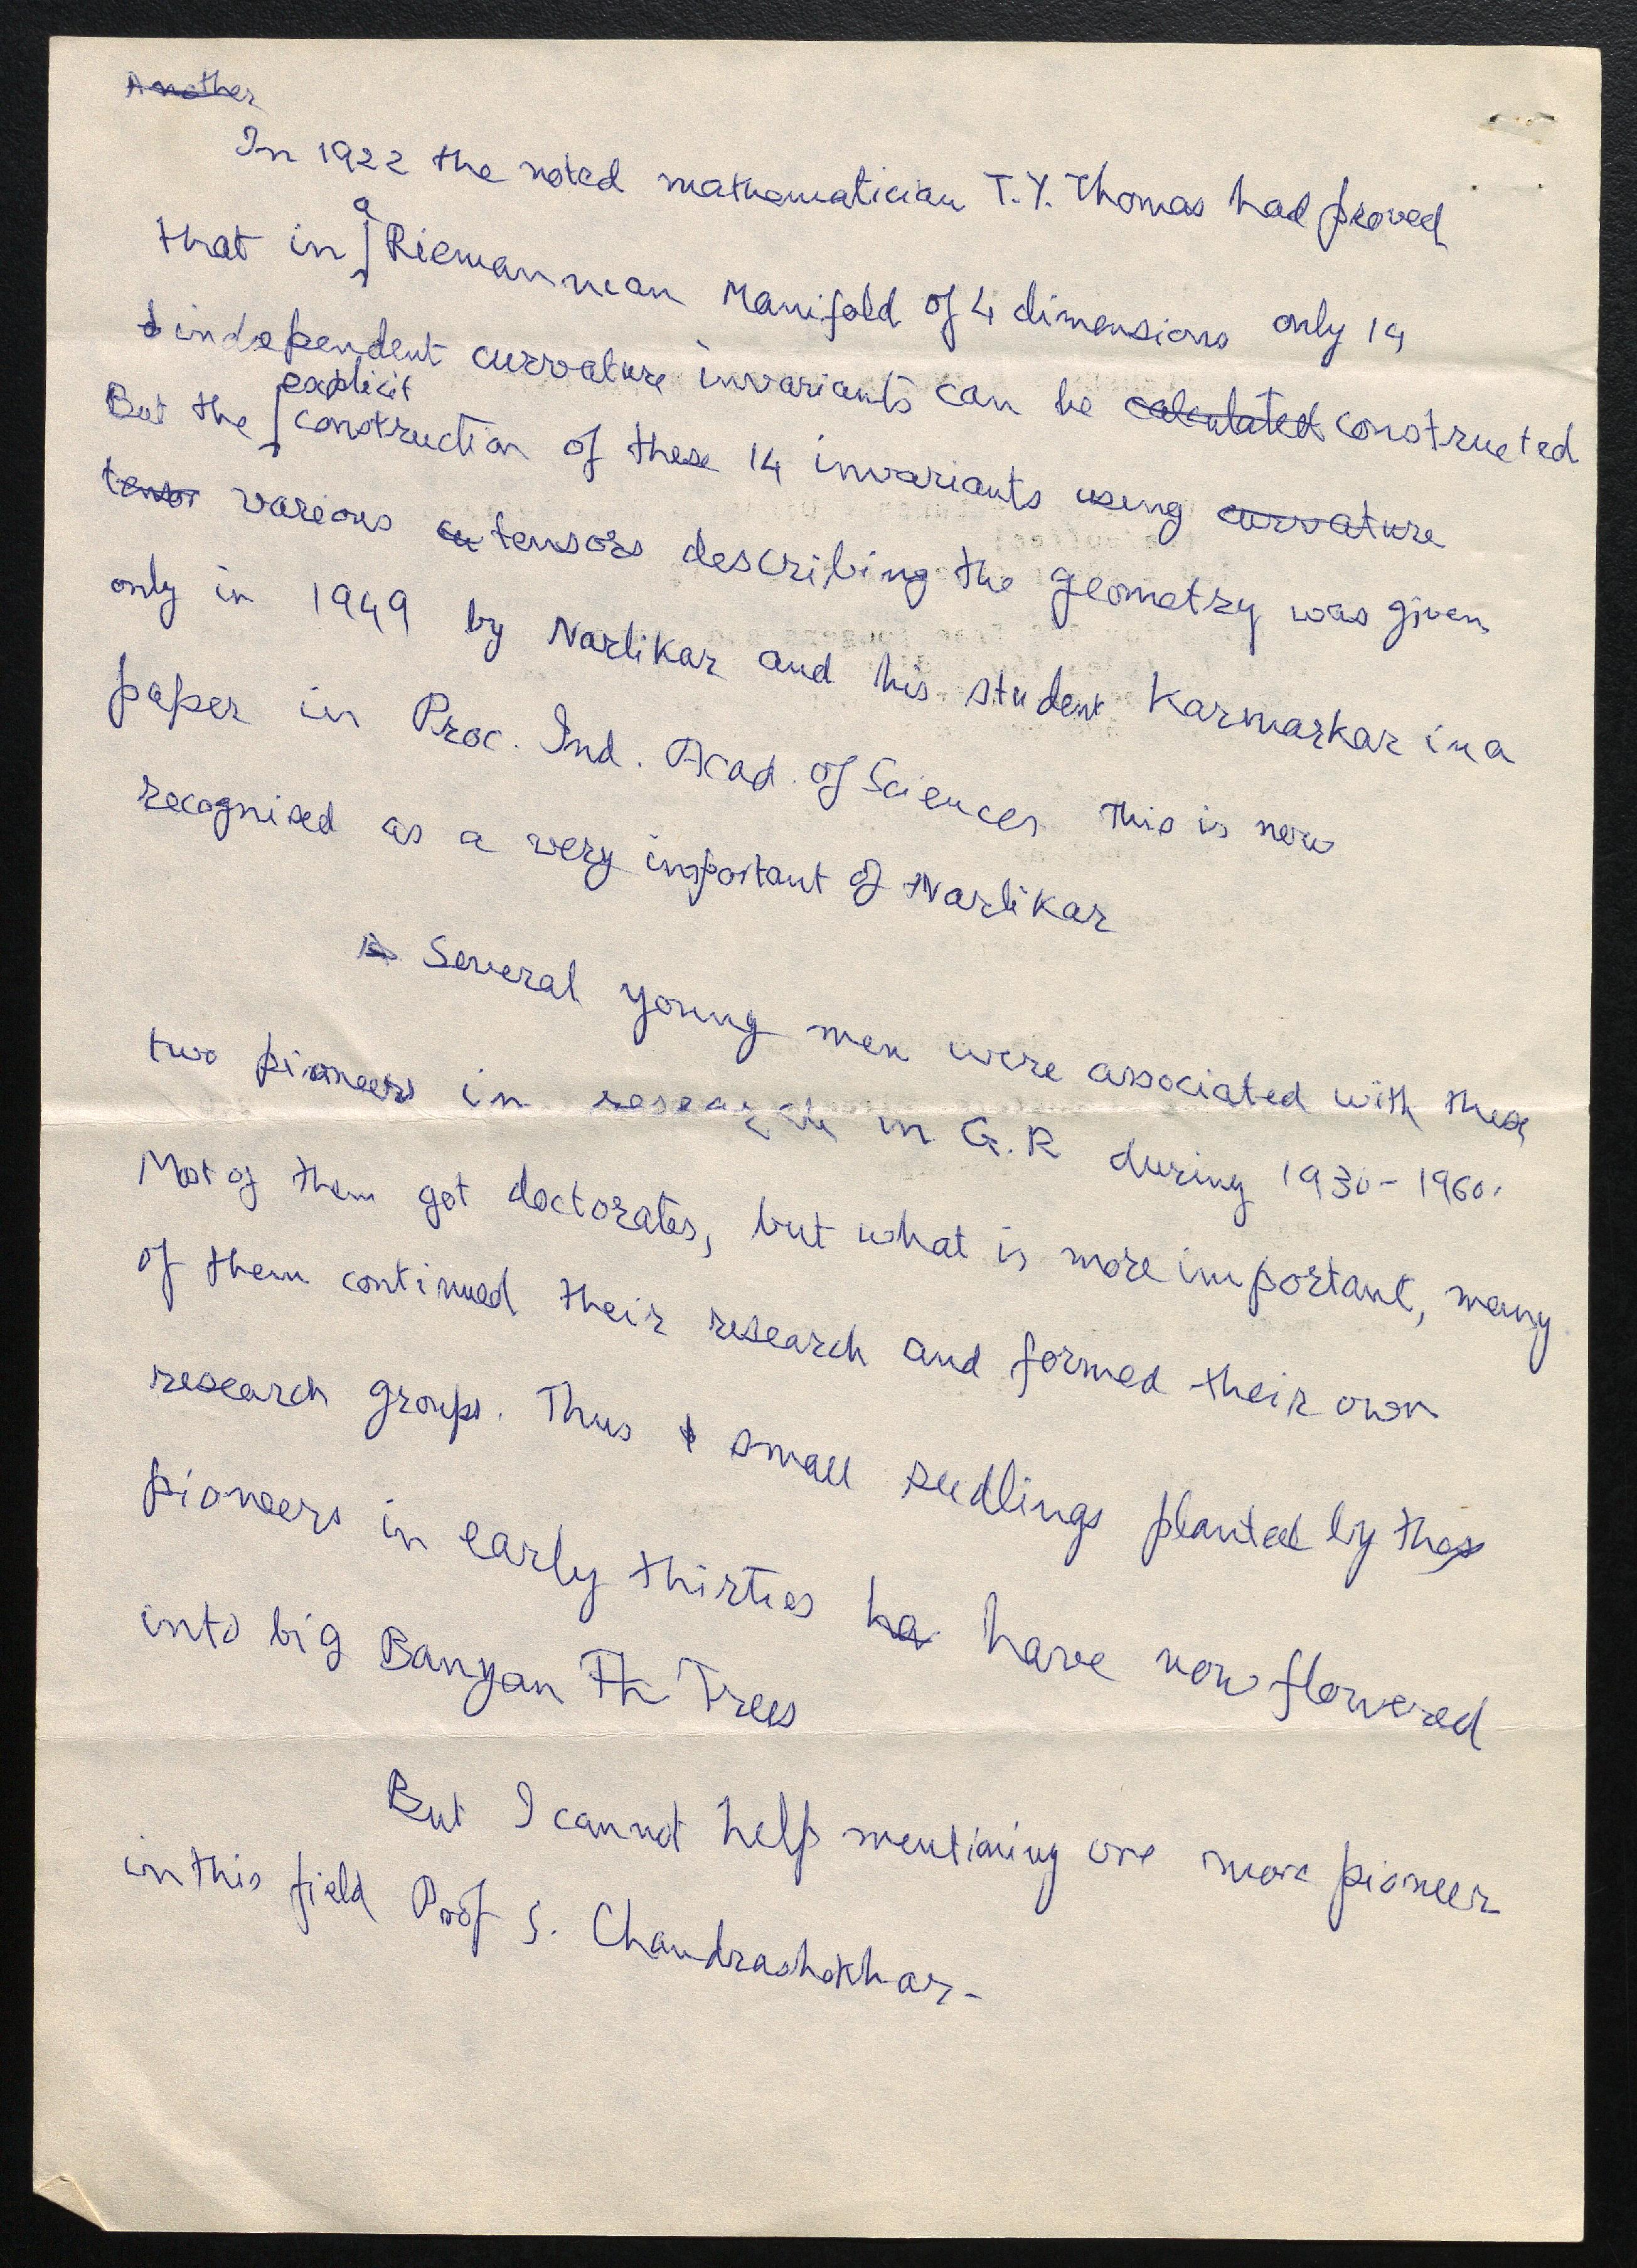 Another
In 1922 the noted mathematician T.Y. Thomas had proved
that in a Riemannean Manifold of 4 dimensions only 14
independent curvature invariants can be calculated constructed
But the explicit construction of these 14 invariants using curvature
tensor various cu tensors describing the geometry was given
only in 1949 by Narlikar and his student Karmarkar in a
paper in Proc. Ind. Acad. of Sciences This is now
recognised as a very important of Narlikar
Several young men were associated with these
two pioneers in research in G.R during 1930-1960.
Most of them got doctorates, but what is more important, many
of them continued their research and formed their own
research groups. Thus small seedlings planted by these
pioneers in early thirties ha have now flowered
into big Banyan Th Trees
But I cannot help mentioning one more pioneer
in this field Prof S. Chandrashekhar-